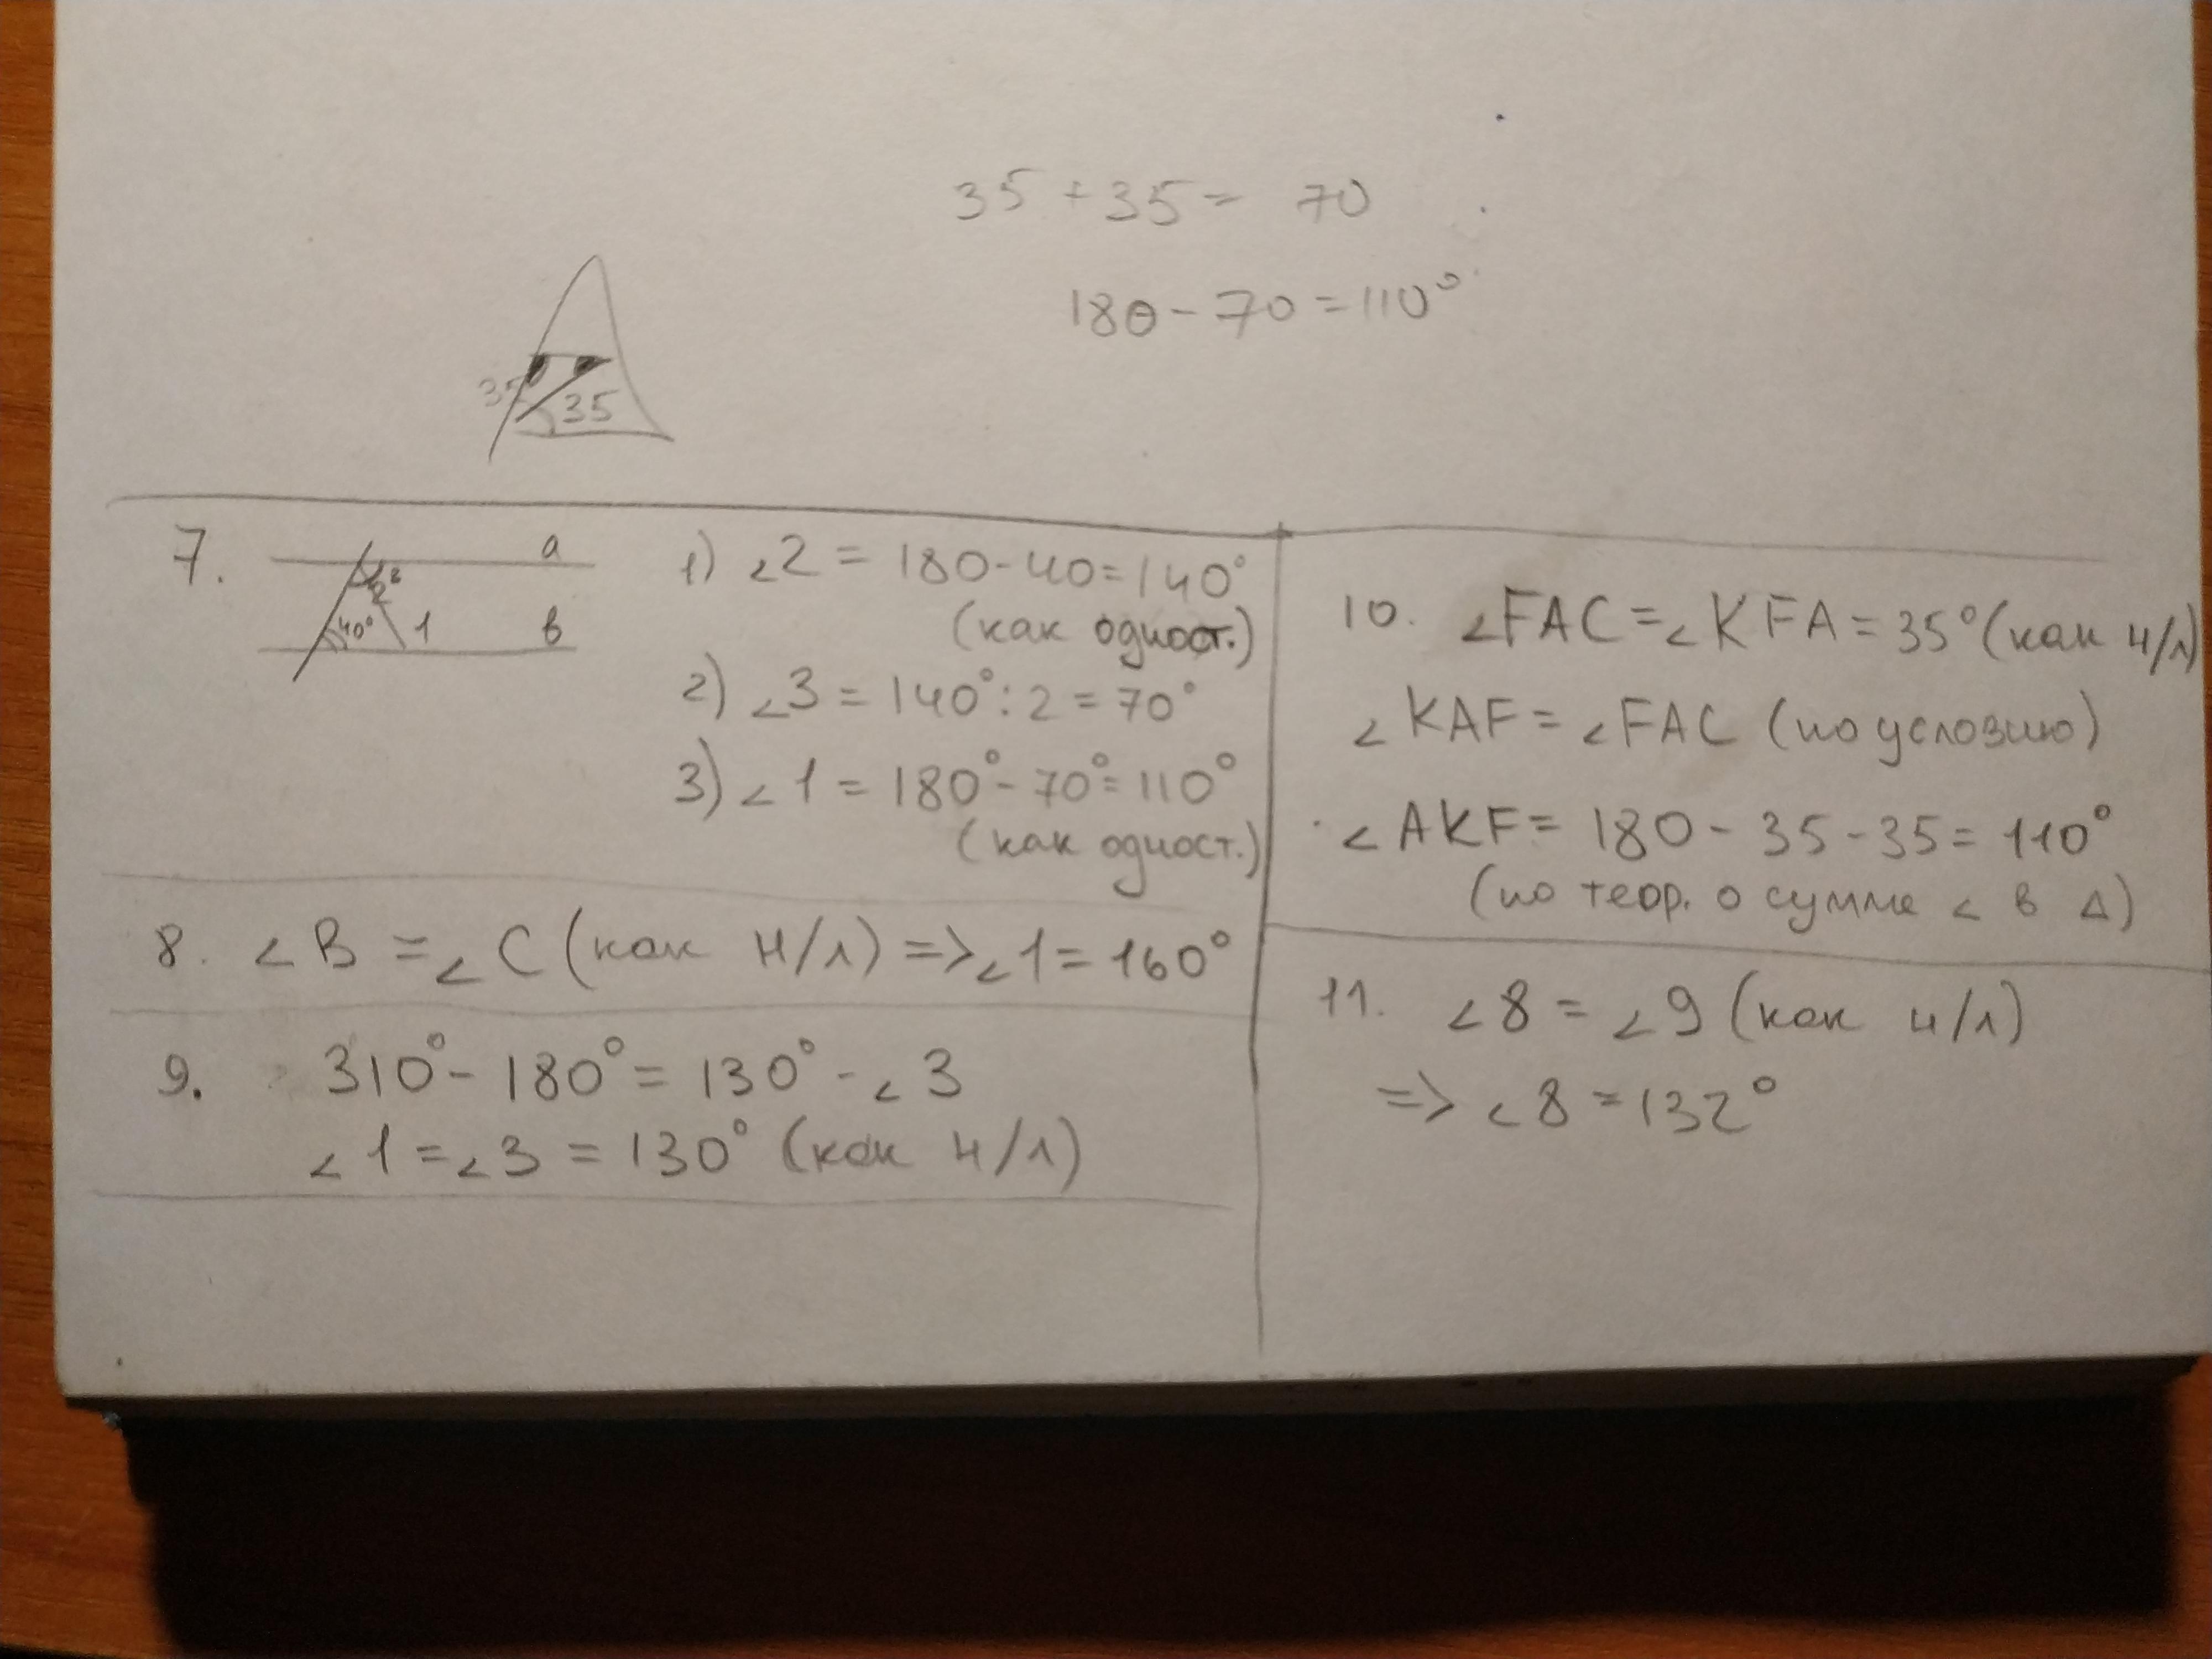 35 + 35 = 70
180 - 70 = 110°
35
35
7.
a
3
2
40°
1
в
1) ∠2 = 180-40=140°
(как одност.)
2) ∠3 = 140°:2=70°
3) ∠1 = 180°-70°=110°
(как одност.)
8. ∠B = ∠C (как н/л) => ∠1 = 160°
9. 310° - 180° = 130° - ∠3
∠1 = ∠3 = 130° (как н/л)
10. ∠FAC = ∠KFA = 35° (как н/л)
∠KAF = ∠FAC (по условию)
∠AKF = 180 - 35 - 35 = 110°
(по теор. о сумме ∠ в Δ)
11. ∠8 = ∠9 (как н/л)
=> ∠8 = 132°